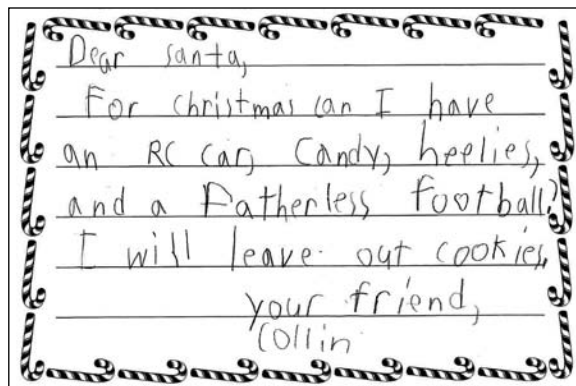 Dear santa,
For christmas can I have
an RC car, Candy, heelies,
and a Fatherless football?
I will leave out cookies,
your friend,
Collin